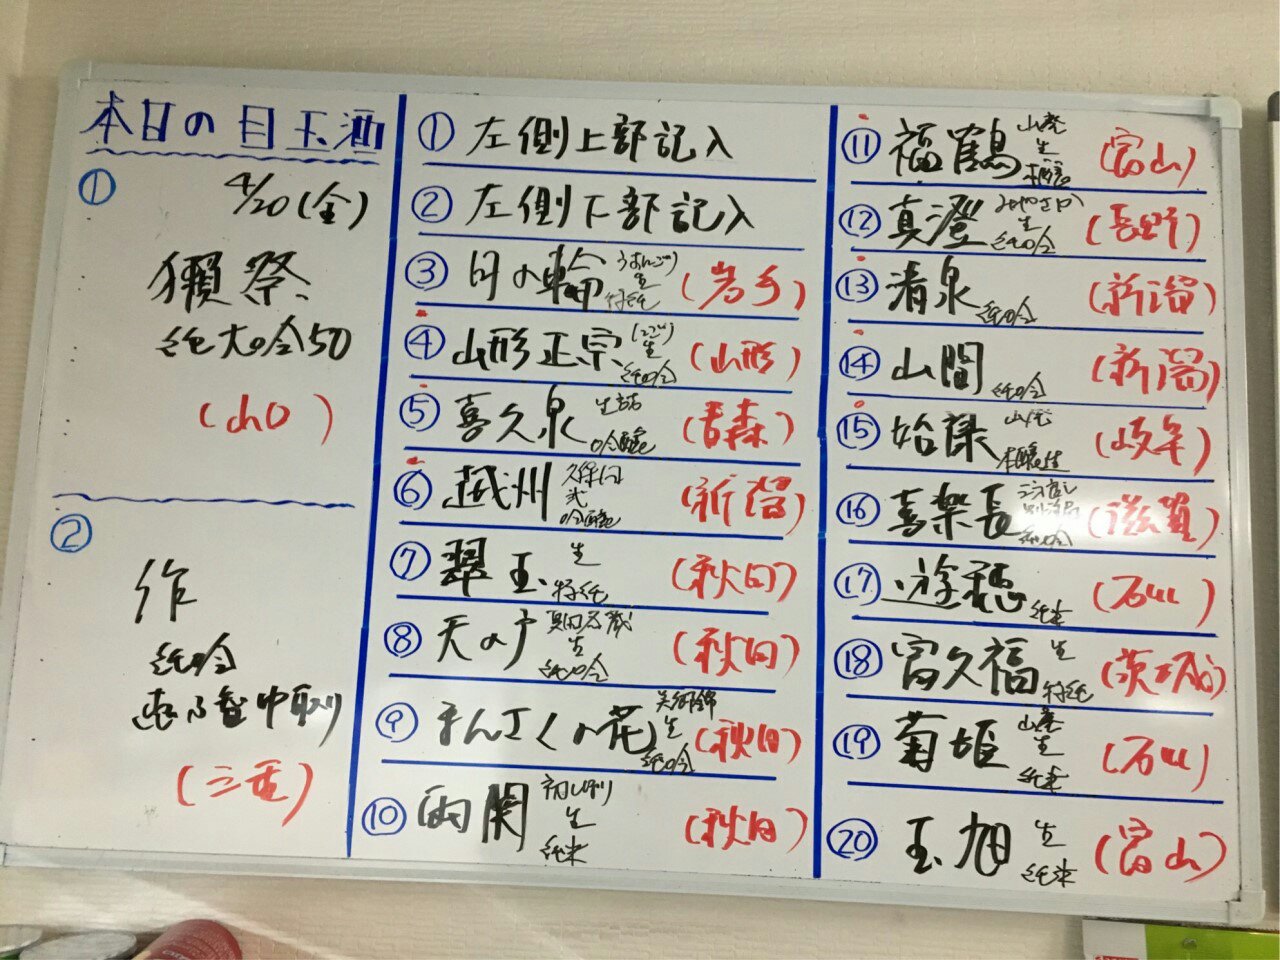 本日の目玉酒
①
4/20(金)
獺祭
純大吟50
(山口)
②
作
純吟
恵乃智中取り
(三重)
① 左側上部記入
② 左側下部記入
③ 月の輪 生 特純 (岩手)
④ 山形正宗 生 純吟 (山形)
⑤ 喜久泉 生詰 吟醸 (青森)
⑥ 越州 吟醸 (新潟)
⑦ 翠玉 生 特純 (秋田)
⑧ 天の戸 生 純吟 (秋田)
⑨ まんさくの花 美郷錦 生 純吟 (秋田)
⑩ 両関 初しぼり 生 純米 (秋田)
⑪ 福鶴 山廃 生 本醸 (富山)
⑫ 真澄 生 純吟 (長野)
⑬ 清泉 純吟 (新潟)
⑭ 山間 純吟 (新潟)
⑮ 始禄 山廃 本醸生 (岐阜)
⑯ 喜楽長 純吟 (滋賀)
⑰ 遊穂 純米 (石川)
⑱ 富久福 生 特純 (茨城)
⑲ 菊姫 山廃 生 純米 (石川)
⑳ 玉旭 生 純米 (富山)